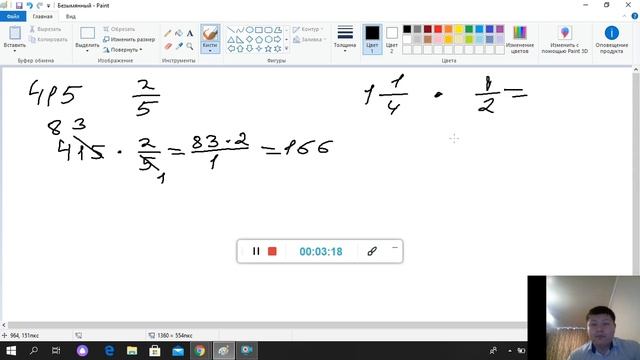 Безымянный - Paint
Файл Главная Вид
Вставить Вырезать Копировать Выделить Обрезать Изменить размер Повернуть Кисти Контур Заливка Толщина Цвет 1 Цвет 2 Изменение цветов Изменить с помощью Paint 3D Оповещение о продукте
Буфер обмена Изображение Инструменты Фигуры Цвета
415 2/5
1 1/4 · 1/2 =
83
415 · 2/5 = 83·2/1 = 166
1
00:03:18
964, 151пкс 1360 × 554пкс 100%